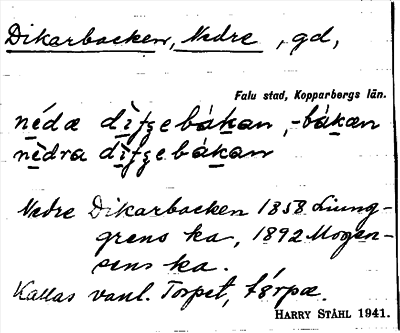 Dikarbacken, Nedre, gd,
Falu stad, Kopparbergs län.
nédæ dìfzebákan, -bákæn
nèdra dìfzebákan
Nedre Dikarbacken 1858 Ljung-
grens ka, 1892 Mogen-
sens ka.
Kallas vanl. Torpet, tórpæ.
HARRY STÅHL 1941.